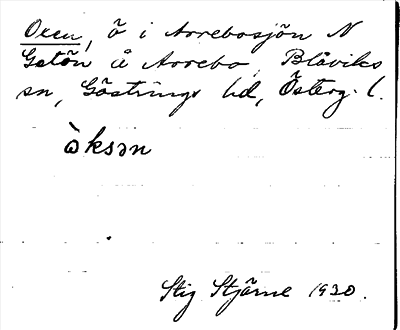 Oxen, ö i Arrebosjön N
Getön å Arrebo, Blåviks
sn, Göstrings hd, Österg. l.
òksən
Stig Stjärne 1930.